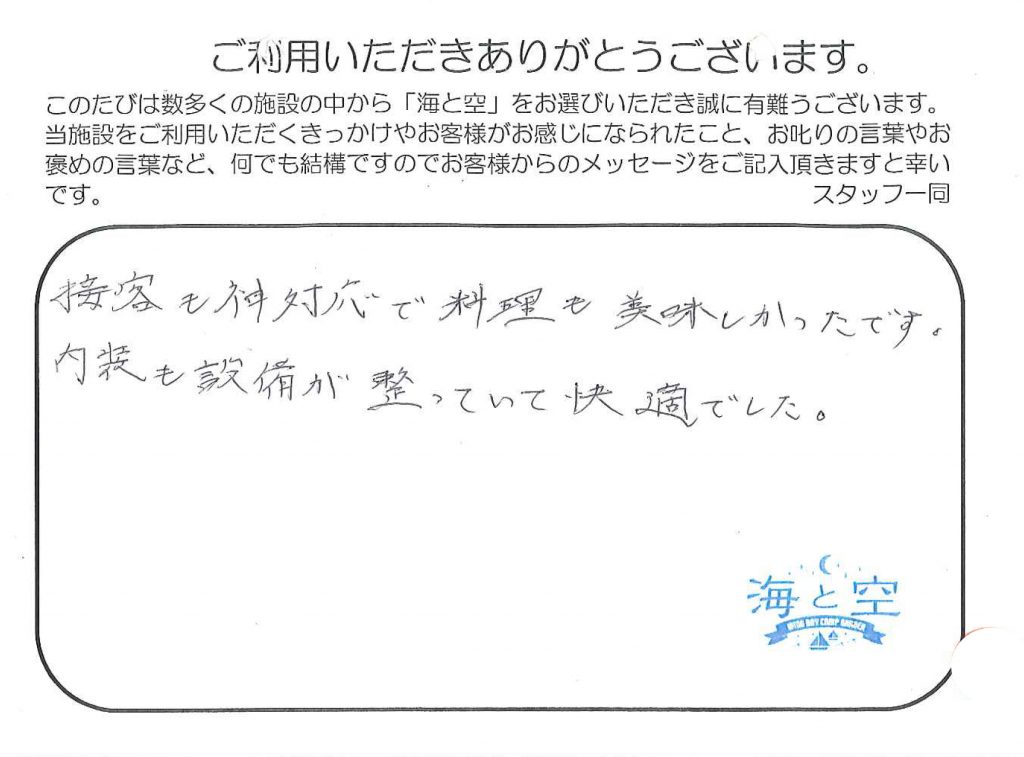 ご利用いただきありがとうございます。
このたびは数多くの施設の中から「海と空」をお選びいただき誠に有難うございます。
当施設をご利用いただくきっかけやお客様がお感じになられたこと、お叱りの言葉やお
褒めの言葉など、何でも結構ですのでお客様からのメッセージをご記入頂きますと幸い
です。 スタッフ一同
接客も神対応で料理も美味しかったです。
内装も設備が整っていて快適でした。
海と空